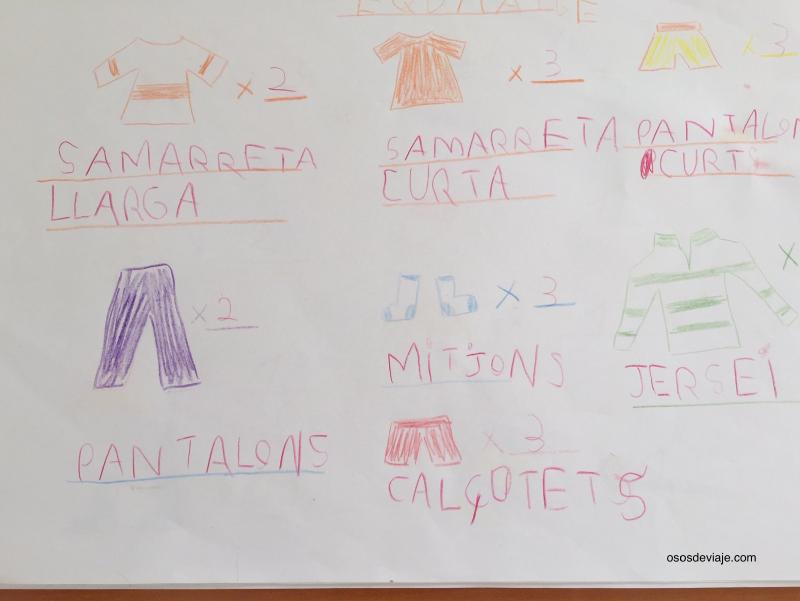 EQUIPATGE
x 2
SAMARRETA
LLARGA
x 3
SAMARRETA
CURTA
x 3
PANTALON
CURTS
x 2
PANTALONS
x 3
MITJONS
x
JERSEI
x 3
CALÇOTETS
ososdeviaje.com